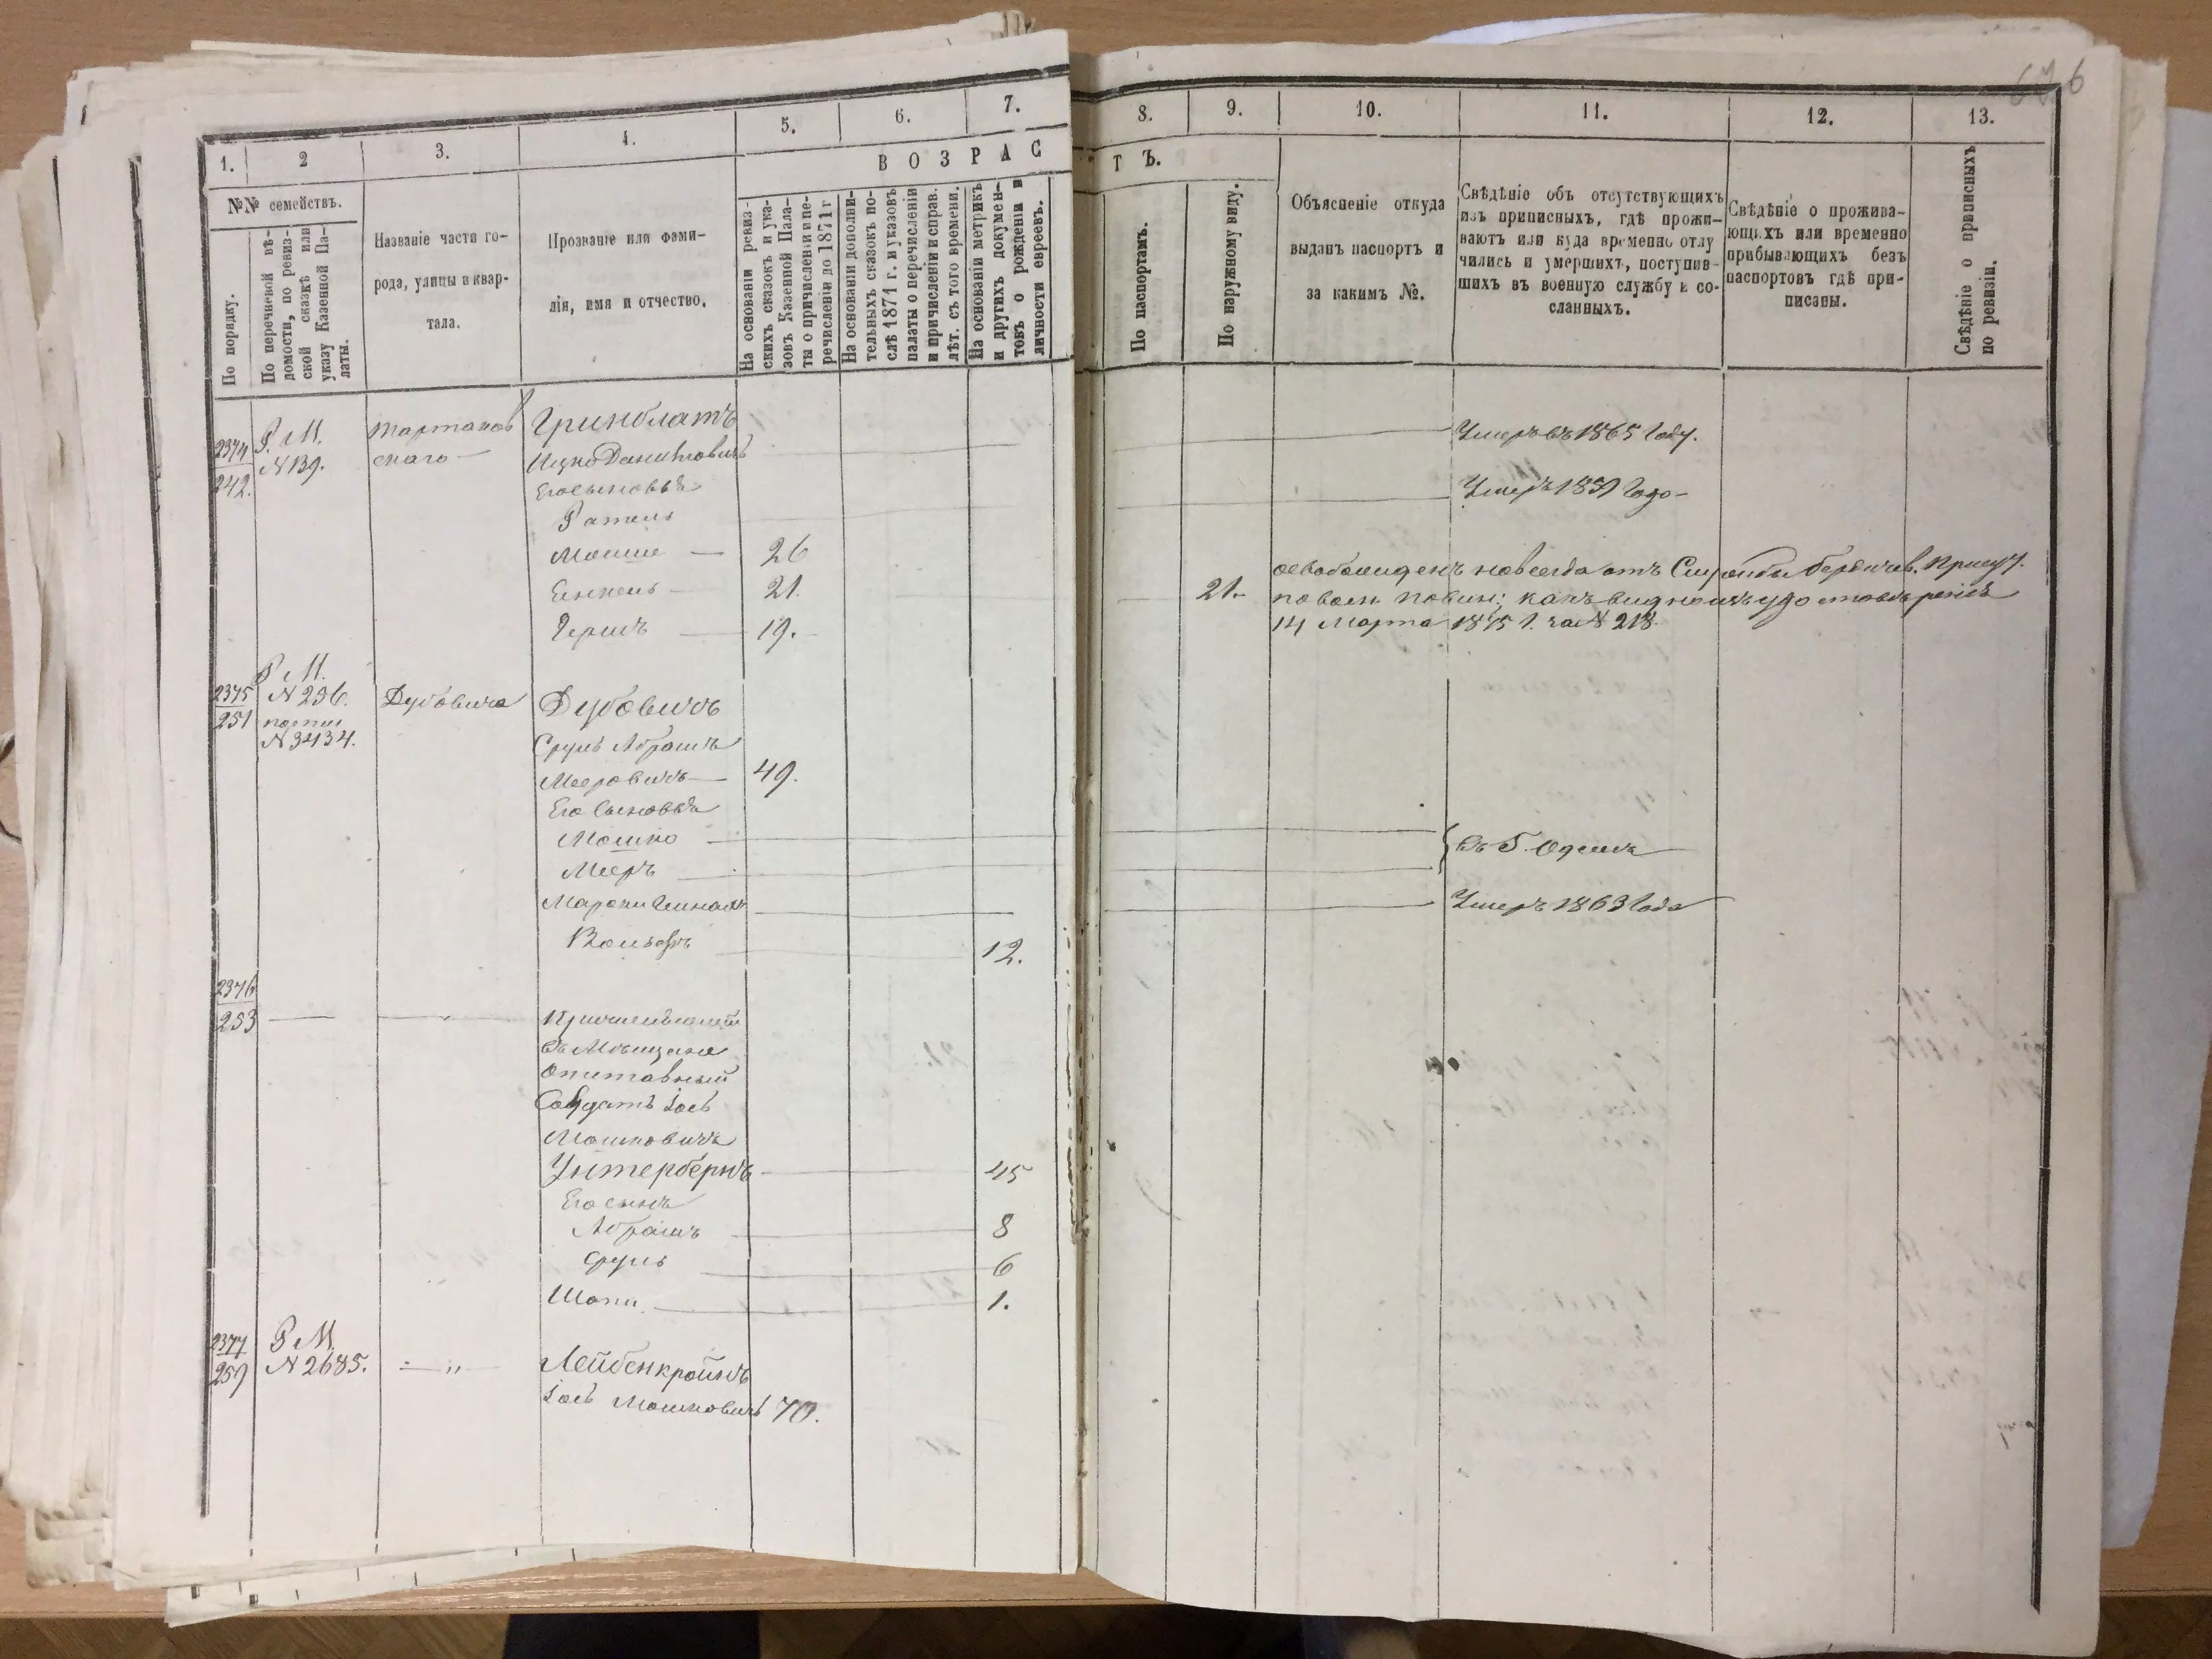 676
1.
2
3.
4.
5.
6.
7.
8.
9.
10.
11.
12.
13.
№№ семействъ.
По порядку.
По перечневой вѣ-
домости, по ревиз-
ской сказкѣ или
указу Казенной Па-
латы.
Названіе части го-
рода, улицы и квар-
тала.
Прозваніе или фами-
лія, имя и отчество.
ВОЗРАС
ТЪ.
На основаніи ревиз-
скихъ сказокъ и ука-
зовъ Казенной Пала-
ты о причисленіи и пе-
речисленіи до 1871 г
На основаніи дополни-
тельныхъ сказокъ по-
слѣ 1871 г. и указовъ
палаты о перечисленіи
и причисленіи и справ.
лѣт. съ того времени.
На основаніи метрикъ
и другихъ докумен-
товъ о рожденіи и
личности евреевъ.
По паспортамъ.
По наружному виду.
Объясненіе откуда
выданъ паспортъ и
за какимъ №.
Свѣдѣніе объ отсутствующихъ
изъ приписныхъ, гдѣ прожи-
ваютъ или куда временно отлу
чились и умершихъ, поступив-
шихъ въ военную службу и со-
сланныхъ.
Свѣдѣніе о прожива-
ющихъ или временно
прибывающихъ безъ
паспортовъ гдѣ при-
писаны.
Свѣдѣніе о приписныхъ
по ревизіи.
2374
242.
Р. М.
N 139.
скаго
Гринблатъ
Ицко Даниловичъ
Умеръ въ 1865 Году.
Его сыновья
Умеръ 185 Года
Мошие — 26
Енкель — 21.
21.
освобожденъ навсегда отъ Службы Бердичев. Присут.
по воен повин; какъ видно изъ удостовѣренія
14 Марта 1875 г. за № 218.
Гершъ — 19.
2375
251
Р М.
N 236.
N 3434.
Дубовича
Дубовичъ
Сруль Абрамъ
Мееровичъ — 49.
Его Сыновья
Мошко
Мееръ
въ Г. Одессѣ
Умеръ 1863 Года
Вольфъ 12.
2376
253
въ Мѣщане
Солдатъ Іось
Мошковичъ
Унтербергъ 45
Его сынъ
Абрамъ 8
Сруль 6
1.
2377
259
Р М.
N 2685.
Лейбенкройнъ
Іось Мошковичъ 70.